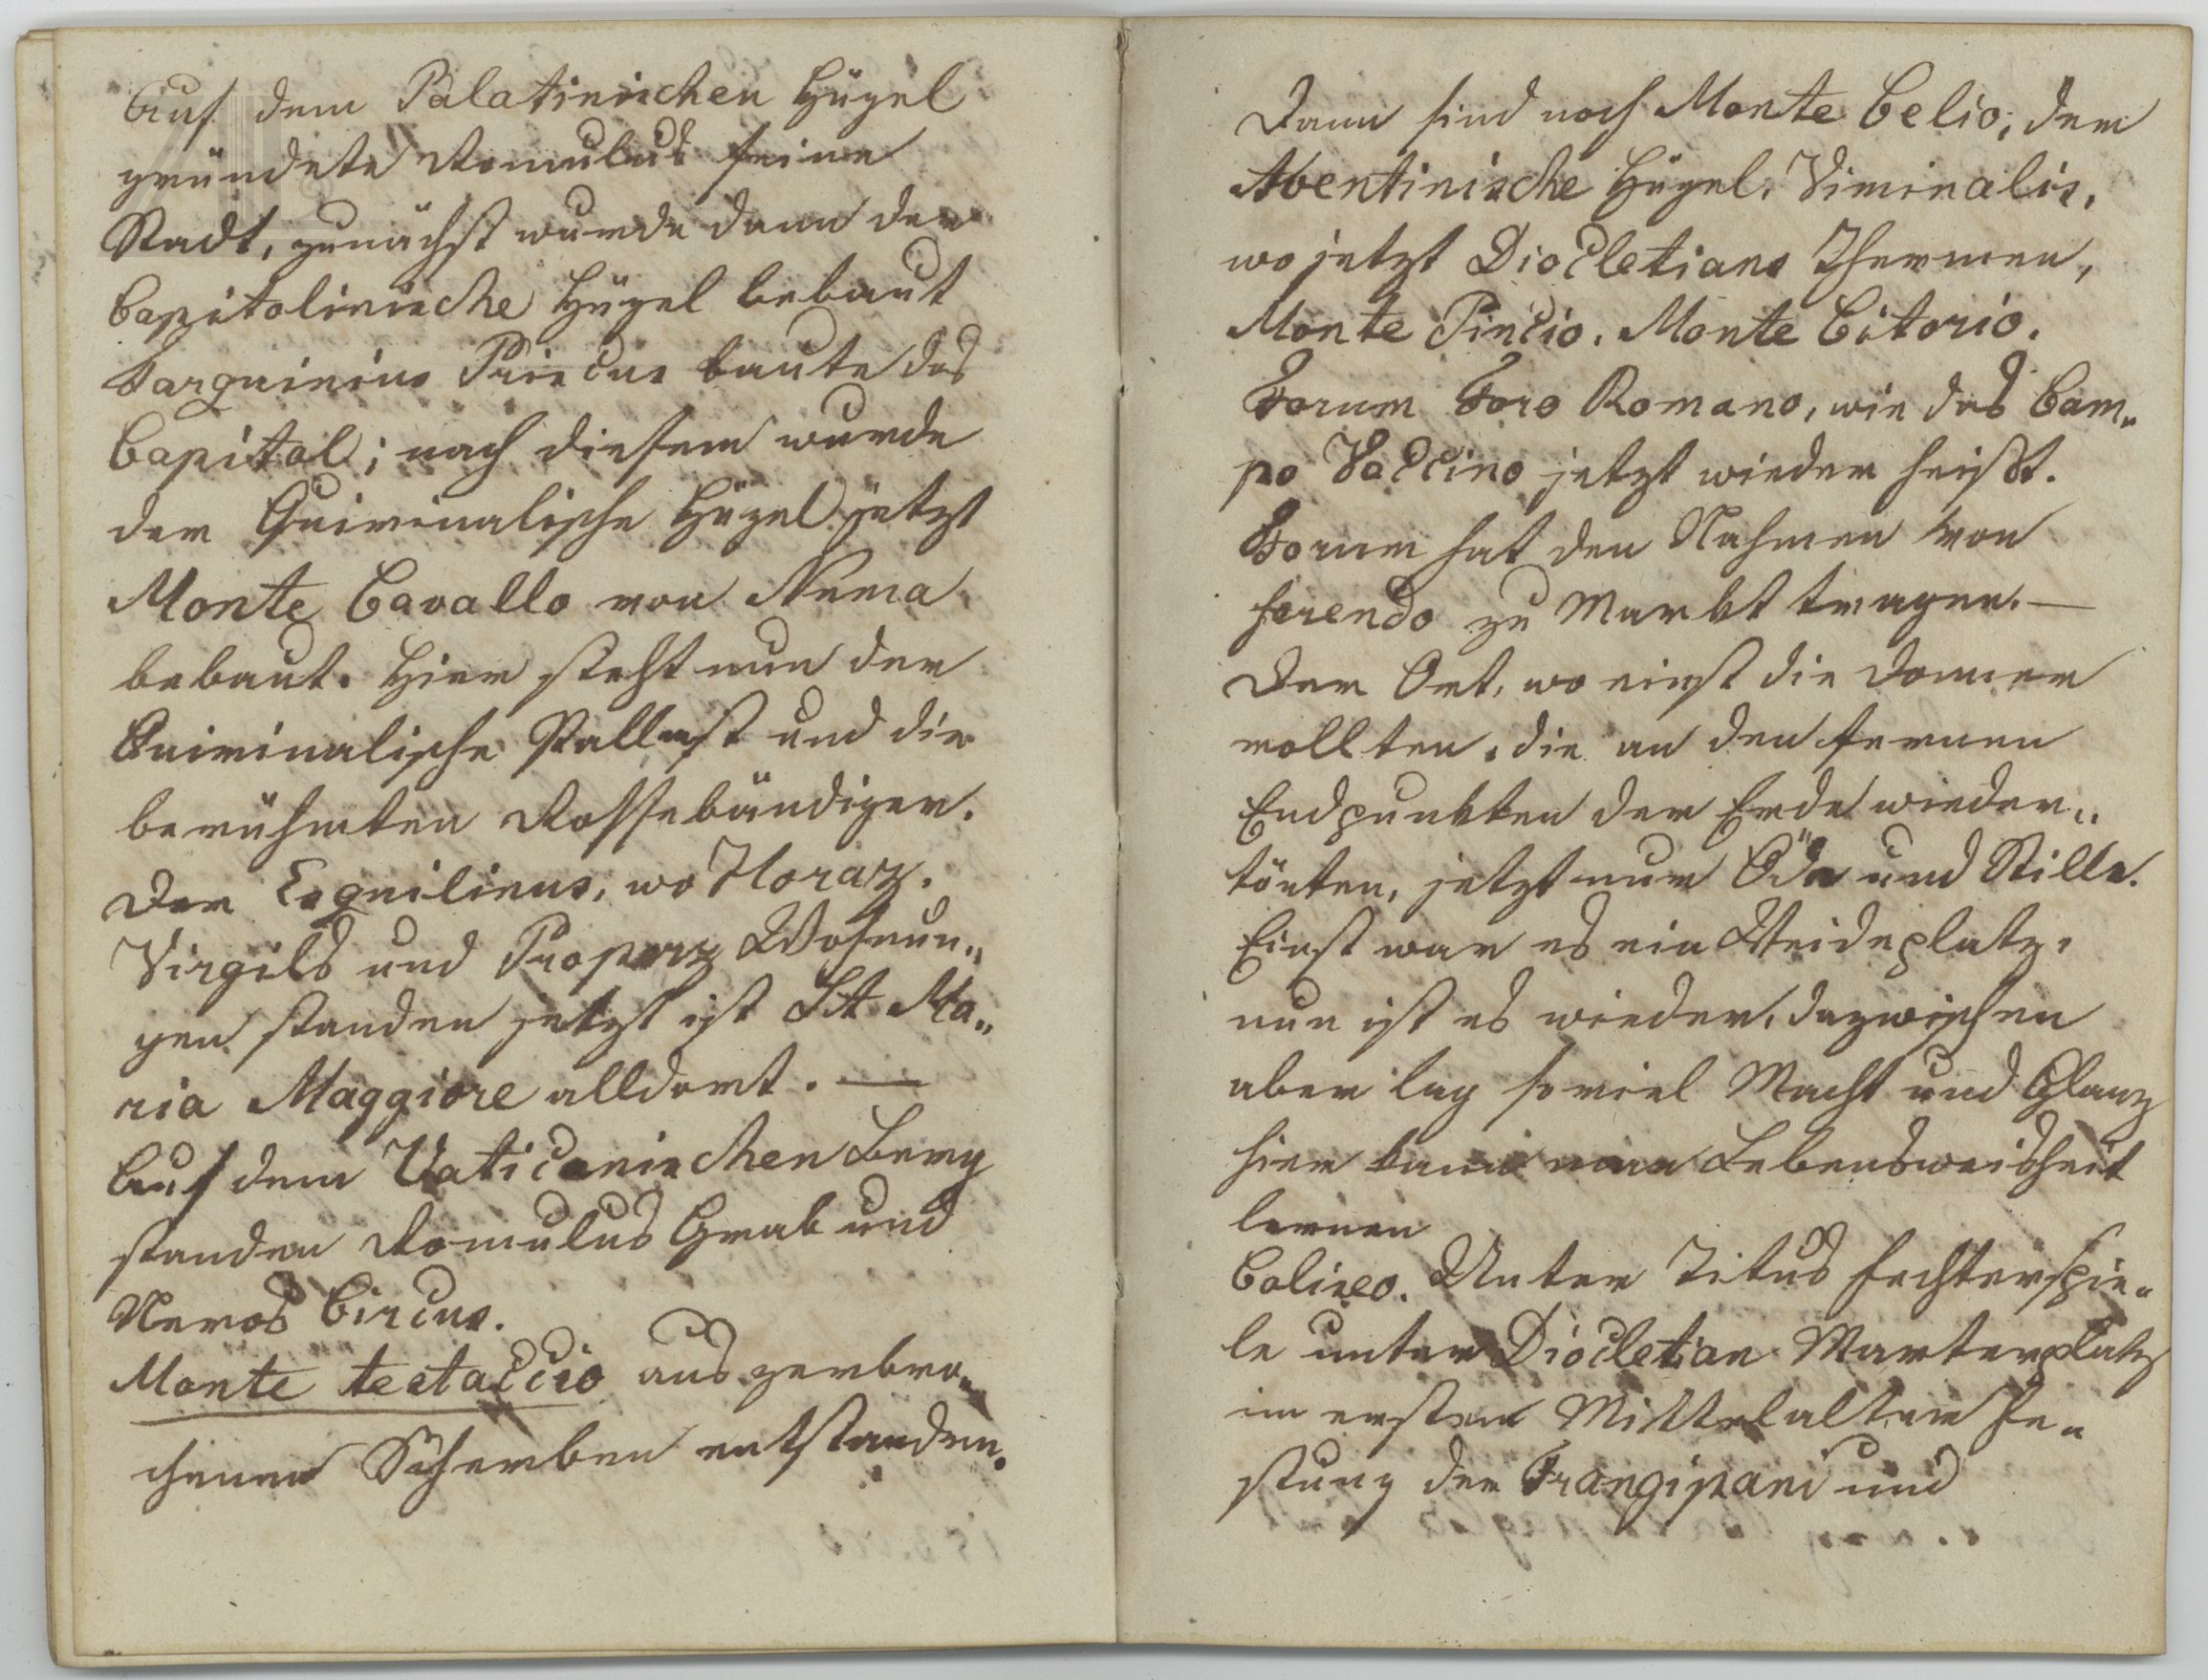 Auf dem Palatinischen Hügel
gründete Romulus seine
Stadt, zunächst wurde dann der
Capitolinische Hügel bebaut
Tarquinius Priscus baute das
Capitol; nach diesem wurde
der Quirinalische Hügel jetzt
Monte Cavallo von Numa
bebaut. Hier steht nun der
Quirinalische Pallast und die
berühmten Rossebändiger.
Der Esquilinus, wo Horaz.
Virgils und Properz Wohnun„
gen standen jetzt ist St Ma„
ria Maggiore alldort. —
Auf dem Vaticanischen Berg
standen Romulus Grab und
Neros Circus.
Monte testaccio aus zerbro„
chenen Scherben entstanden.
Dann sind noch Monte Celio, der
Aventinische Hügel, Viminalis,
wo jetzt Diocletians Thermen,
Monte Pincio. Monte Citorio.
Forum Foro Romano, wie das Cam„
po Vaccino jetzt wieder heißt.
Forum hat den Nahmen von
ferendo zu Markt tragen. —
Der Ort, wo einst die Donner
rollten, die an den fernen
Endpunkten der Erde wieder„
tönten, jetzt nur Öde und Stille.
Einst war es ein Weideplatz,
nun ist es wieder, dazwischen
aber lag so viel Macht und Glanz
hier kann man Lebensweisheit
lernen
Coliseo. Unter Titus Fechterspie„
le unter Diocletian Marterplatz
im ersten Mittelalter Fe„
stung der Frangipani und